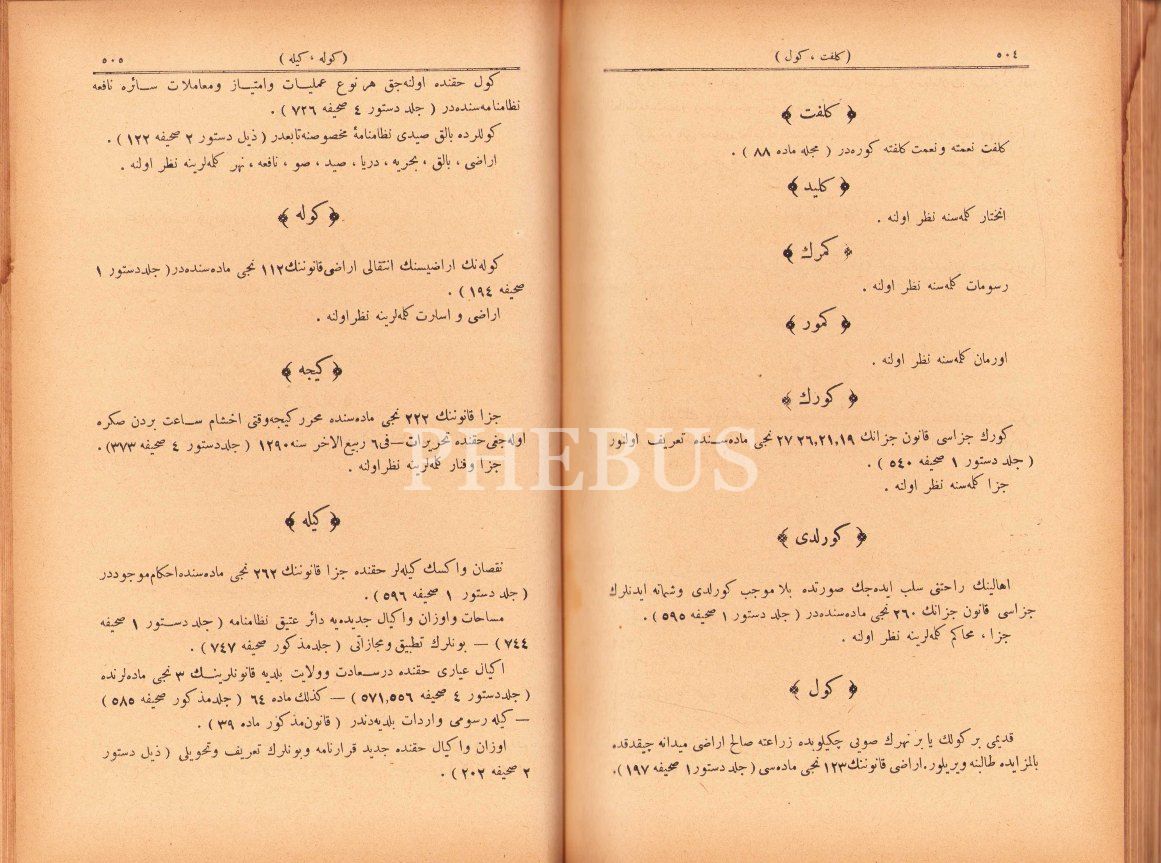 ٥٠٤ ( كلفت ، كول )
﴿ كلفت ﴾
كلفت نعمته ونعمت كلفته كوره‌در ( مجله ماده ٨٨ ) .
﴿ كليد ﴾
انختار كله‌سنه نظر اولنه .
﴿ كمرك ﴾
رسومات كله‌سنه نظر اولنه .
﴿ كمور ﴾
اورمان كله‌سنه نظر اولنه .
﴿ كورك ﴾
كورك جزاسى قانون جزانك ١٩,٢١,٢٦ ٢٧ نجى ماده‌سنده تعريف اولنور
( جلد دستور ١ صحيفه ٥٤٠ ) .
جزا كله‌سنه نظر اولنه .
﴿ كورلدى ﴾
اهالينك راحتنى سلب ايده‌جك صورتده بلا موجب كورلدى وشماته ايدنلرك
جزاسى قانون جزانك ٢٦٠ نجى ماده‌سنده‌در ( جلد دستور ١ صحيفه ٥٩٥ ) .
جزا ، محاكم كله‌لرينه نظر اولنه .
﴿ كول ﴾
قديمى بر كولك يا بر نهرك صويى چكيلوبده زراعته صالح اراضى ميدانه چيقدقده
بالمزايده طالبنه ويريلور. اراضى قانوننك ١٢٣ نجى ماده‌سى ( جلد دستور ١ صحيفه ١٩٧ ) .
( كوله ، كيله ) ٥٠٥
كول حقنده اولنه‌جق هر نوع عمليات وامتياز ومعاملات سائره نافعه
نظامنامه‌سنده‌در ( جلد دستور ٤ صحيفه ٧٢٦ ) .
كوللرده بالق صيدى نظامنامهٔ مخصوصنه تابعدر ( ذيل دستور ٢ صحيفه ١٢٢ ) .
اراضى ، بالق ، بحريه ، دريا ، صيد ، صو ، نافعه ، نهر كله‌لرينه نظر اولنه .
﴿ كوله ﴾
كوله‌نك اراضيسنك انتقالى اراضى قانوننك ١١٢ نجى ماده‌سنده‌در ( جلد دستور ١
صحيفه ١٩٤ ) .
اراضى و اسارت كله‌لرينه نظر اولنه .
﴿ كيجه ﴾
جزا قانوننك ٢٢٢ نجى ماده‌سنده محرر كيجه وقتى اخشام ساعت بردن صكره
اوله‌جغى حقنده تحريرات – فى ٦ ربيع الاخر سنه ١٢٩٠ ( جلد دستور ٤ صحيفه ٣٧٣ ) .
جزا وفنار كله‌لرينه نظر اولنه .
﴿ كيله ﴾
نقصان واكسك كيله‌لر حقنده جزا قانوننك ٢٦٢ نجى ماده‌سنده احكام موجوددر
( جلد دستور ١ صحيفه ٥٩٦ ) .
مساحات واوزان واكيال جديده‌يه دائر عتيق نظامنامه ( جلد دستور ١ صحيفه
٧٤٤ ) – بونلرك تطبيق ومجازاتى ( جلد مذكور صحيفه ٧٤٧ ) .
اكيال عيارى حقنده درسعادت وولايت بلديه قانونلرينك ٣ نجى ماده‌لرنده
( جلد دستور ٤ صحيفه ٥٧١,٥٥٦ ) – كذلك ماده ٦٤ ( جلد مذكور صحيفه ٥٨٥ )
– كيله رسومى واردات بلديه‌دندر ( قانون مذكور ماده ٣٩ ) .
اوزان واكيال حقنده جديد قرارنامه وبونلرك تعريف وتحويلى ( ذيل دستور
٢ صحيفه ٢٠٢ ) .
PHEBUS